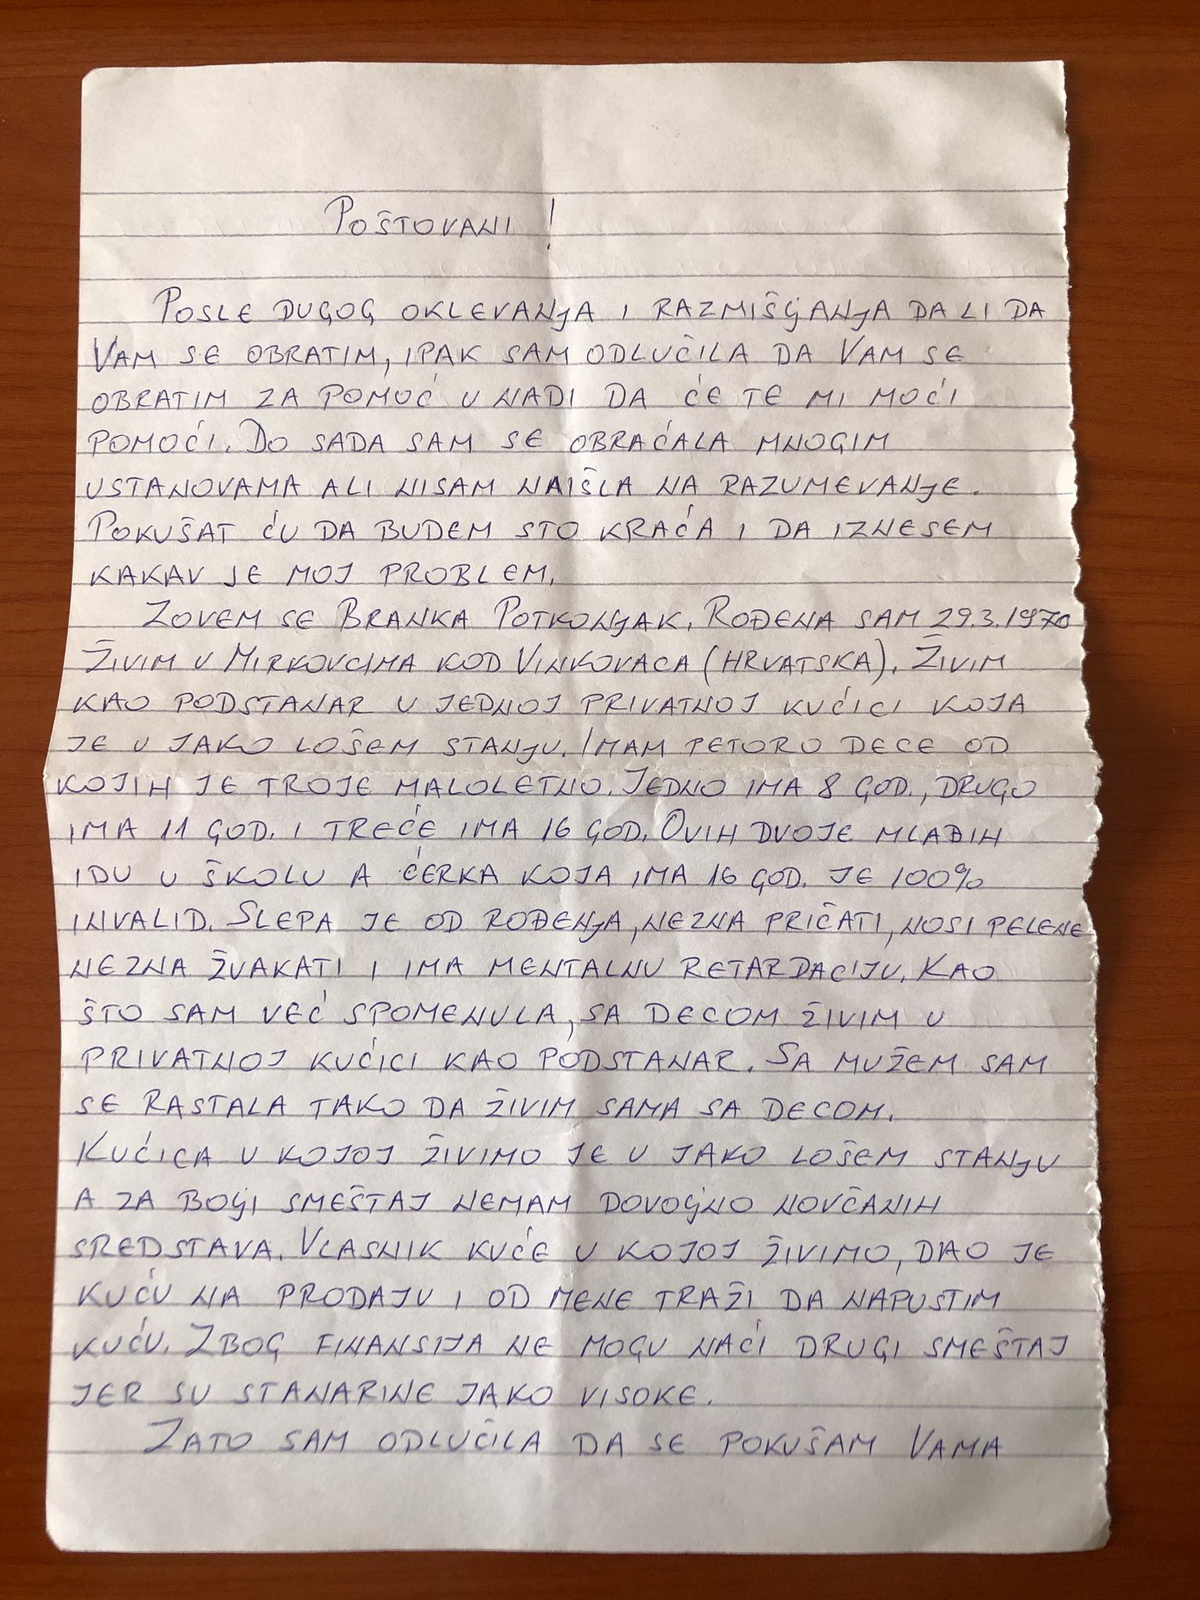 POŠTOVANI!
POSLE DUGOG OKLEVANJA I RAZMIŠLJANJA DA LI DA
VAM SE OBRATIM, IPAK SAM ODLUČILA DA VAM SE
OBRATIM ZA POMOĆ U NADI DA ĆE TE MI MOĆI
POMOĆI. DO SADA SAM SE OBRAĆALA MNOGIM
USTANOVAMA ALI NISAM NAIŠLA NA RAZUMEVANJE.
POKUŠAT ĆU DA BUDEM STO KRAĆA I DA IZNESEM
KAKAV JE MOJ PROBLEM.
ZOVEM SE BRANKA POTKONJAK. ROĐENA SAM 29.3.1970
ŽIVIM U MIRKOVCIMA KOD VINKOVACA (HRVATSKA). ŽIVIM
KAO PODSTANAR U JEDNOJ PRIVATNOJ KUĆICI KOJA
JE U JAKO LOŠEM STANJU. IMAM PETORO DECE OD
KOJIH JE TROJE MALOLETNO. JEDNO IMA 8 GOD., DRUGO
IMA 11 GOD. I TREĆE IMA 16 GOD. OVIH DVOJE MLAĐIH
IDU U ŠKOLU A ĆERKA KOJA IMA 16 GOD. JE 100%
INVALID. SLEPA JE OD ROĐENJA, NEZNA PRIČATI, NOSI PELENE
NEZNA ŽVAKATI I IMA MENTALNU RETARDACIJU. KAO
ŠTO SAM VEĆ SPOMENULA, SA DECOM ŽIVIM U
PRIVATNOJ KUĆICI KAO PODSTANAR. SA MUŽEM SAM
SE RASTALA TAKO DA ŽIVIM SAMA SA DECOM.
KUĆICA U KOJOJ ŽIVIMO JE U JAKO LOŠEM STANJU
A ZA BOLJI SMEŠTAJ NEMAM DOVOLJNO NOVČANIH
SREDSTAVA. VLASNIK KUĆE U KOJOJ ŽIVIMO, DAO JE
KUĆU NA PRODAJU I OD MENE TRAŽI DA NAPUSTIM
KUĆU. ZBOG FINANSIJA NE MOGU NAĆI DRUGI SMEŠTAJ
JER SU STANARINE JAKO VISOKE.
ZATO SAM ODLUČILA DA SE POKUŠAM VAMA